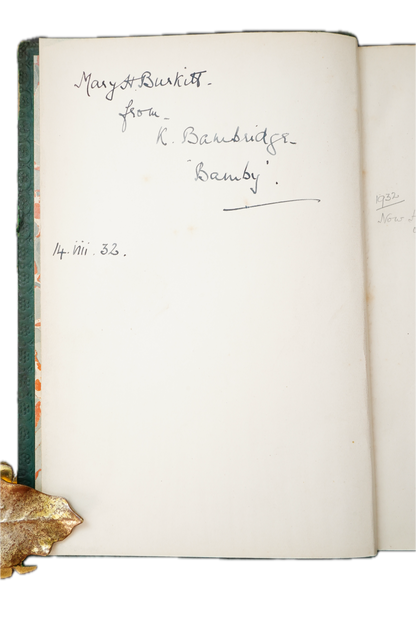 Mary H. Burkitt.
from
K. Bambridge
"Bamby".
14. viii. 32.
1932
Now